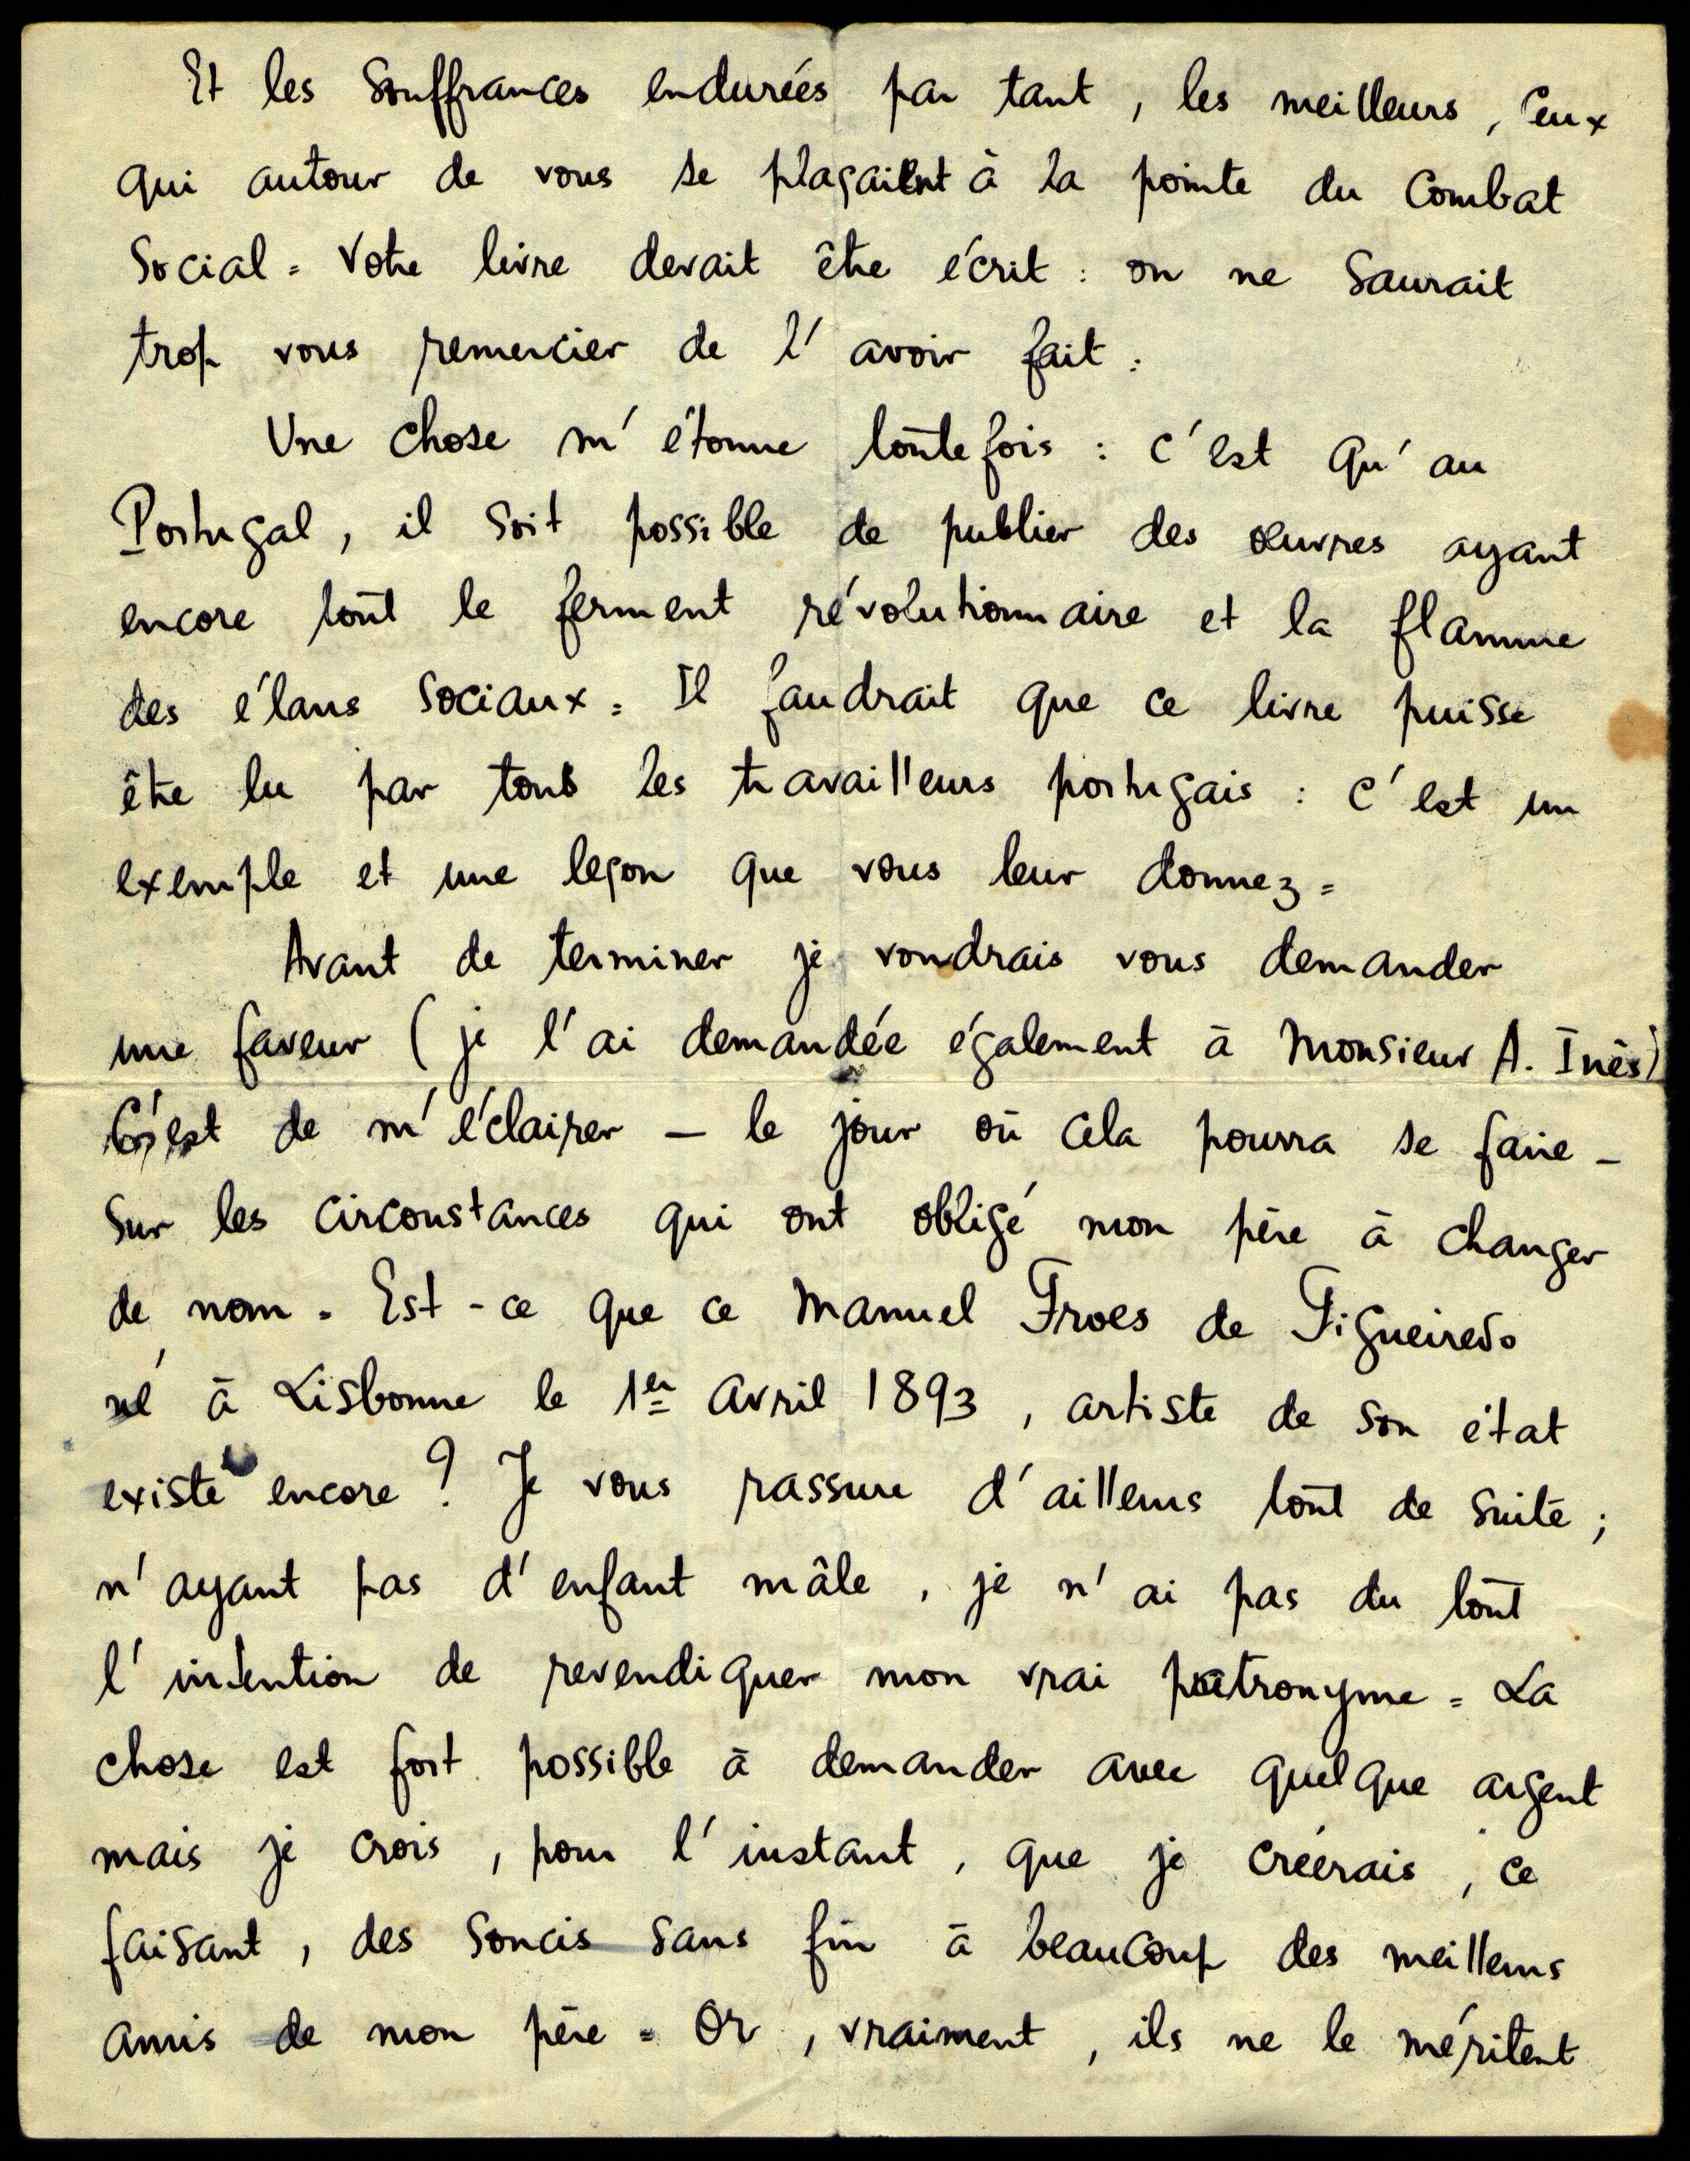 Et les souffrances endurées par tant, les meilleurs, ceux
qui autour de vous se plaçaient à la pointe du combat
social = Votre livre devait être écrit : on ne saurait
trop vous remercier de l'avoir fait.
Une chose m'étonne toutefois : c'est qu'au
Portugal, il soit possible de publier des œuvres ayant
encore tout le ferment révolutionnaire et la flamme
des élans sociaux = Il faudrait que ce livre puisse
être lu par tous les travailleurs portugais : c'est un
exemple et une leçon que vous leur donnez =
Avant de terminer je voudrais vous demander
une faveur (je l'ai demandée également à Monsieur A. Inês)
C'est de m'éclairer — le jour où cela pourra se faire —
sur les circonstances qui ont obligé mon père à changer
de nom. Est-ce que ce Manuel Froes de Figueiredo
né à Lisbonne le 1er avril 1893, artiste de son état
existe encore ? Je vous rassure d'ailleurs tout de suite ;
n'ayant pas d'enfant mâle, je n'ai pas du tout
l'intention de revendiquer mon vrai patronyme = La
chose est fort possible à demander avec quelque argent
mais je crois, pour l'instant, que je créerais, ce
faisant, des soucis sans fin à beaucoup des meilleurs
amis de mon père = Or, vraiment, ils ne le méritent